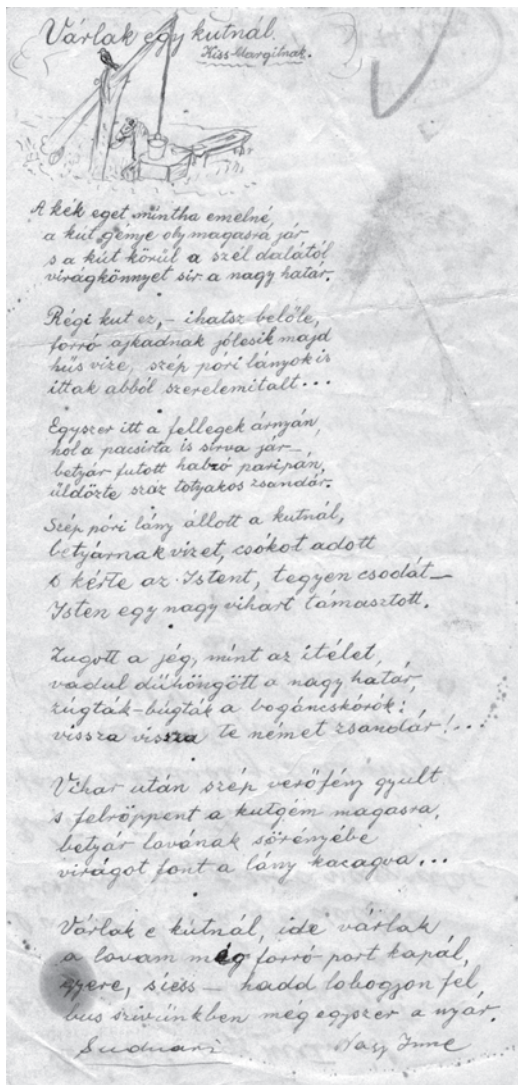 Várlak egy kutnál.
Kiss Margitnak.
A kék eget mintha emelné
a kút gémje oly magasra jár
s a kút körül a szél dalától
virágkönnyet sir a nagy határ.
Régi kut ez, – ihatsz belőle,
forró ajkadnak jólesik majd
hűs vize, szép póri lányok is
ittak abból szerelemitalt...
Egyszer itt a fellegek árnyán,
hol a pacsirta is sirva jár –
betyár futott habzó paripán,
üldözte száz totyakos zsandár.
Szép póri lány állott a kutnál,
betyárnak vizet, csókot adott
s kérte az Istent, tegyen csodát –
Isten egy nagy vihart támasztott.
Zugott a jég, mint az itélet,
vadul dühöngött a nagy határ,
zúgták-búgták a bogáncskórók:
vissza vissza te német zsandár!...
Vihar után szép verőfény gyult
s felröppent a kutgém magasra,
betyár lovának sörényébe
virágot font a lány kacagva...
Várlak e kútnál, ide várlak
a lovam még forró port kapál,
gyere, siess – hadd lobogjon fel
bus szivünkben még egyszer a nyár.
Nagy Imre